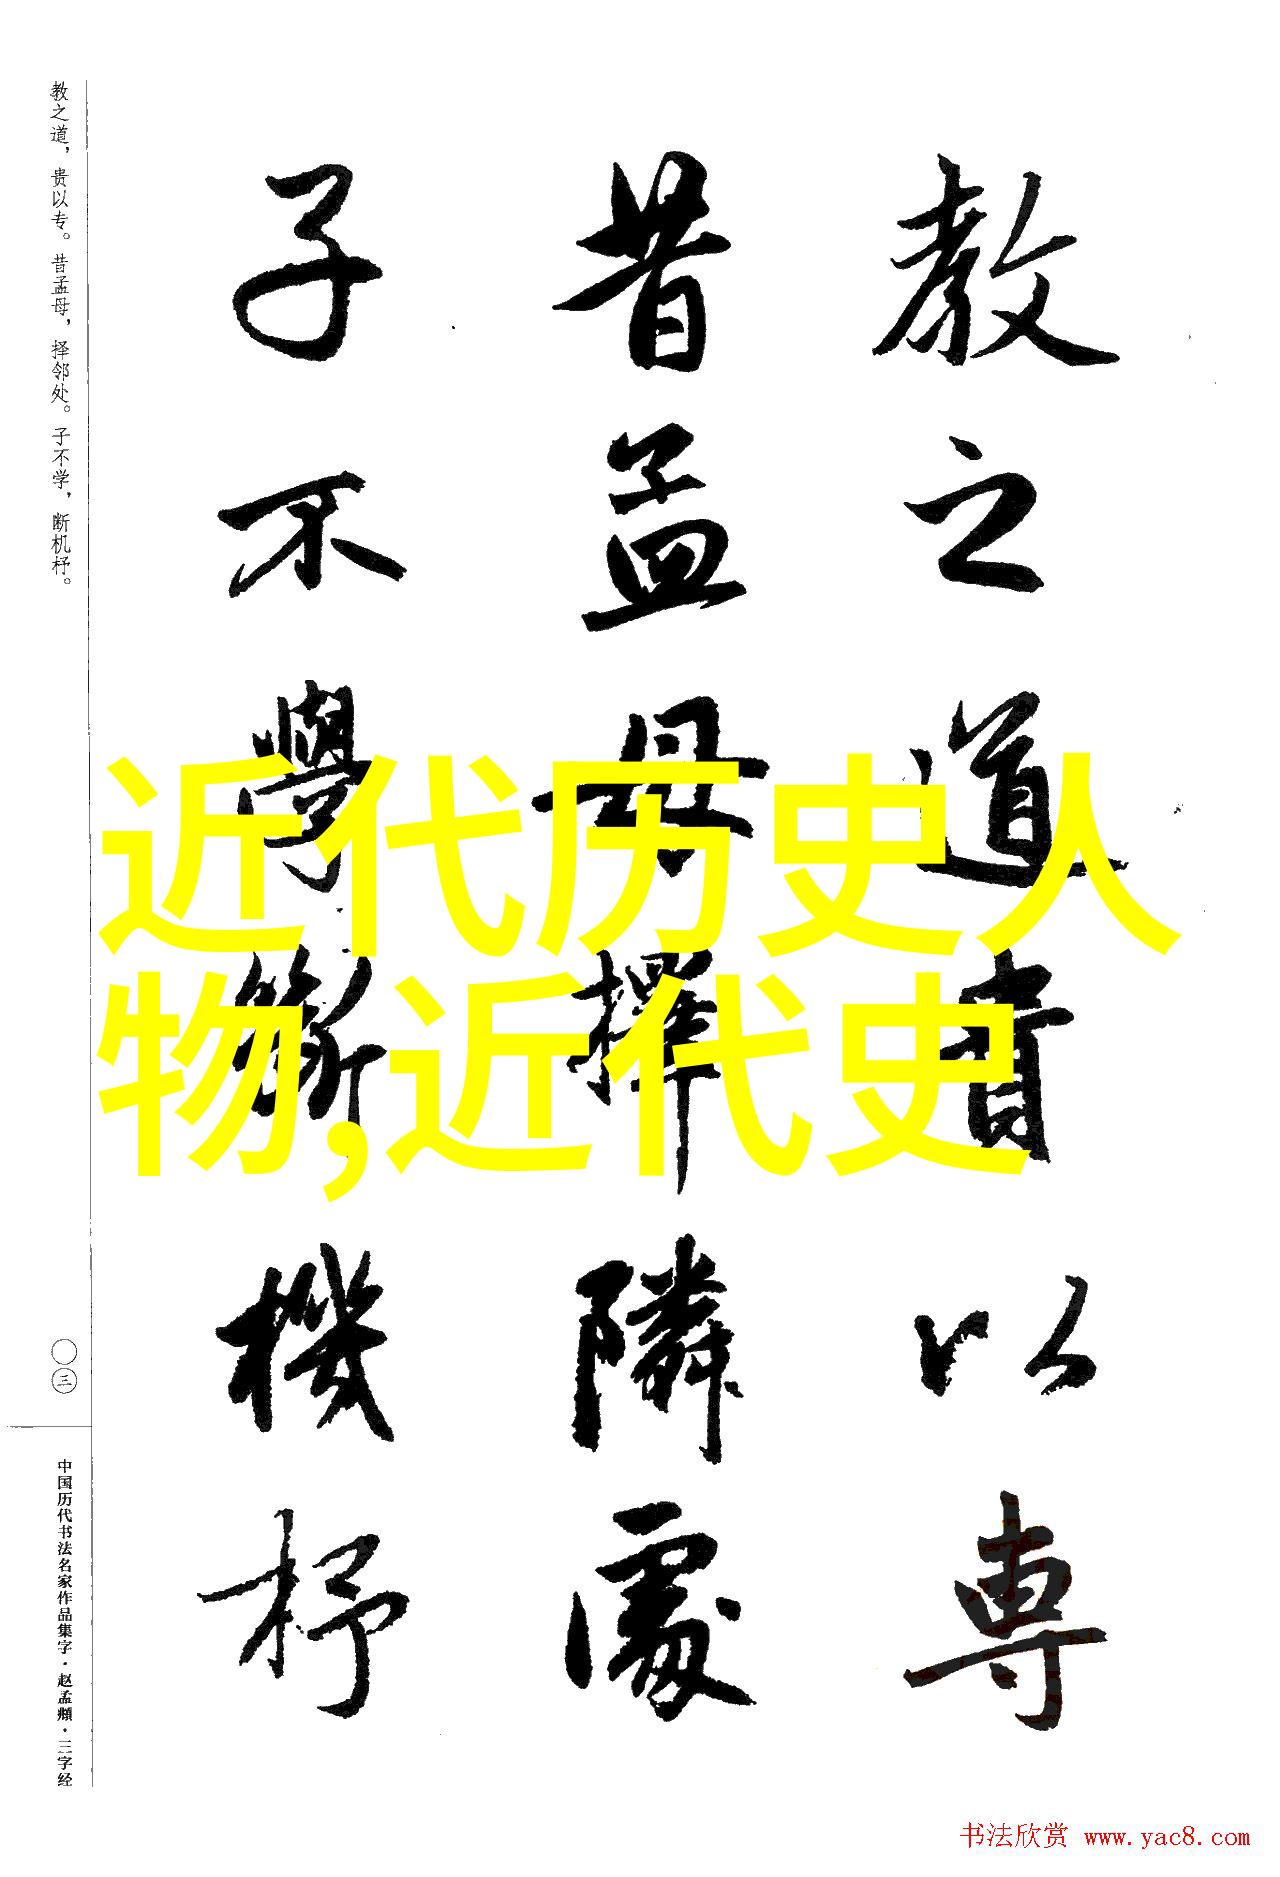 教之道貴以專
昔孟母擇隣處
子不學斷機杼
近代历史人
物,近代史
教之道，贵以专。昔孟母，择邻处。子不学，断机杼。
〇三
中国历代书法名家作品集字·赵孟頫·三字经
书法欣赏 www.yac8.com